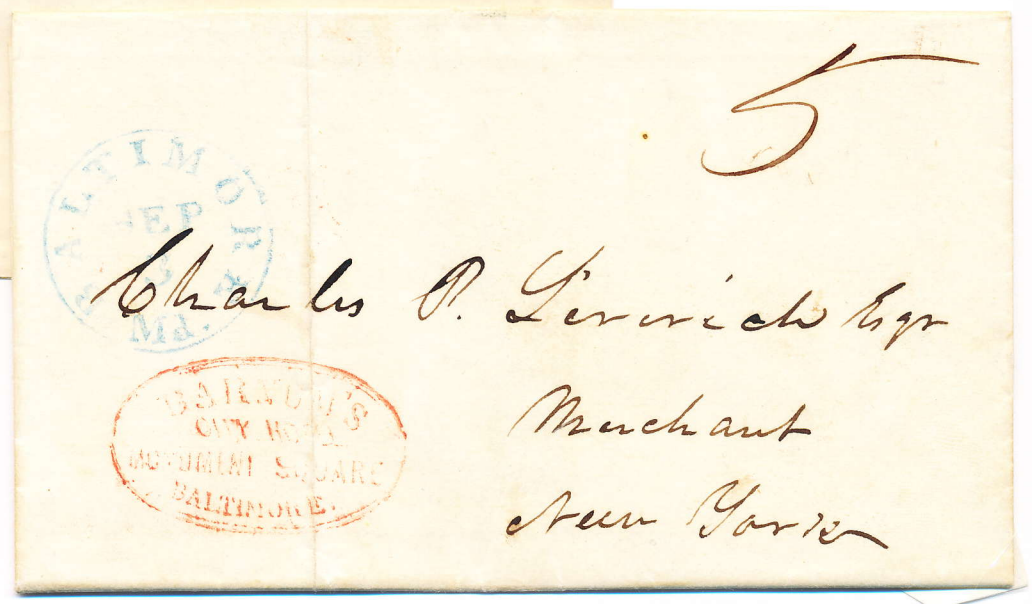 5
BALTIMORE
SEP
Md.
Charles P. Leverich Esqr
Merchant
New York
BARNUM'S
CITY HOTEL
MONUMENT SQUARE
BALTIMORE.